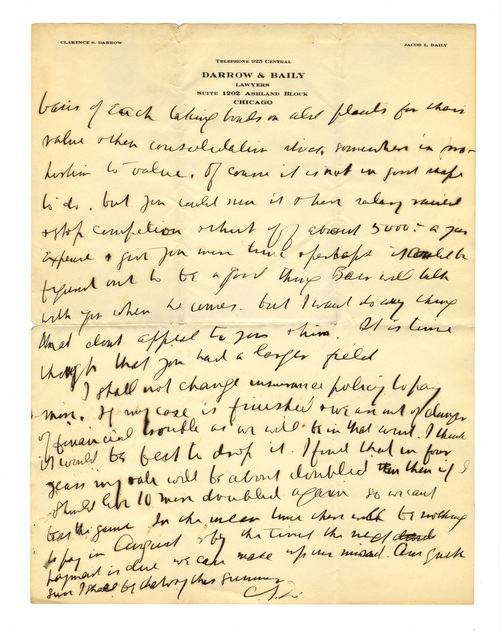 CLARENCE S. DARROW
JACOB L. BAILY
TELEPHONE 925 CENTRAL
DARROW & BAILY
LAWYERS
SUITE 1202 ASHLAND BLOCK
CHICAGO
basis of each taking bonds on old plants for their
value then consolidation stock somewhere in pro-
portion to value. Of course it is not in good shape
to do. but you could run it & have salary raised
& stop competion & shut off about 5000- a year
expense & give you more time & perhaps it could be
figured out to be a good thing will talk
with you when he comes. but I want do any thing
that dont appeal to you & him. It is time
though that you had a larger field
I shall not change insurance policy to pay
more. If my case is finished & we are out of danger
of financial trouble as we will be in that event. I think
it would be best to drop it. I find that in four
years my rate will be about doubled then if I
should live 10 more doubled again so we cant
beat the game In the mean time there will be nothing
to pay in August & by the time the next
payment is due we can make up our mind. Am quite
sure I shall be this summer